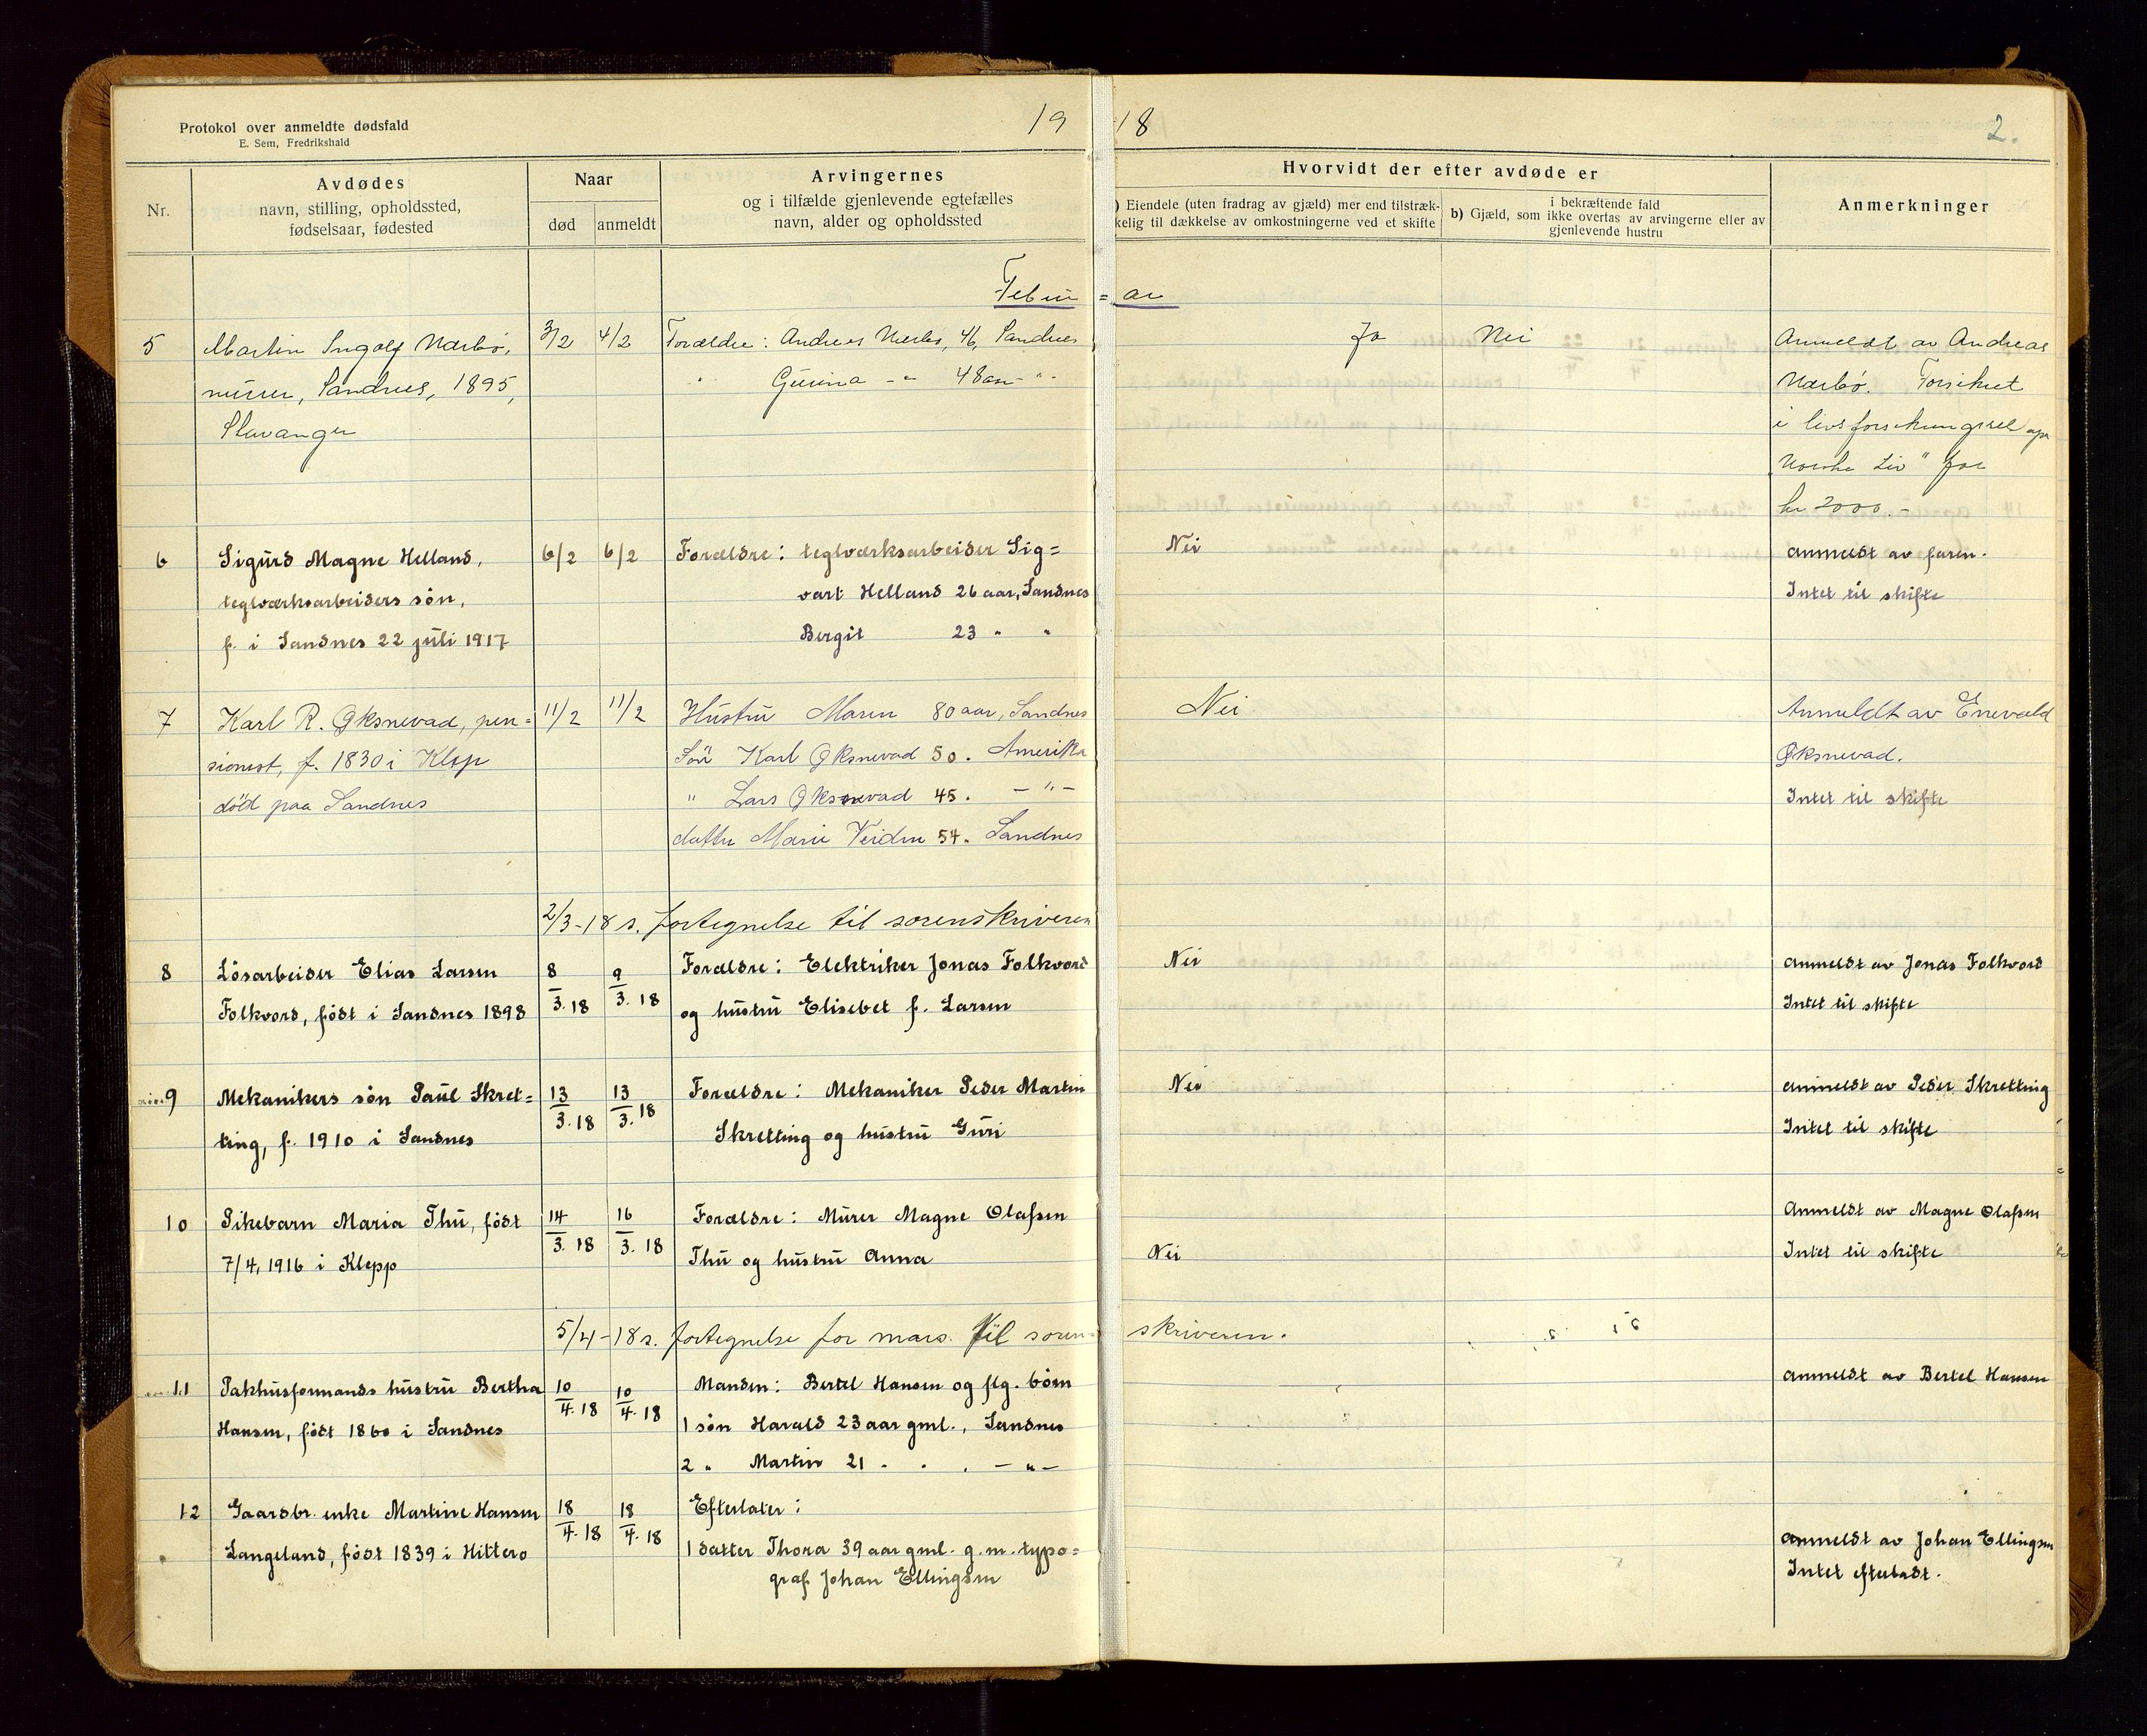 Protokol over anmeldte dødsfald
E. Sem, Fredrikshald
19 18
2.
Nr.
Avdødes
navn, stilling, opholdssted,
fødselsaar, fødested
Naar
død
anmeldt
Arvingernes
og i tilfælde gjenlevende egtefælles
navn, alder og opholdssted
Hvorvidt der efter avdøde er
) Eiendele (uten fradrag av gjæld) mer end tilstræk-
kelig til dækkelse av omkostningerne ved et skifte
i bekræftende fald
b) Gjæld, som ikke overtas av arvingerne eller av
gjenlevende hustru
Anmerkninger
Febru = ar
5
Martin Ingolf Nærbø,
murer, Sandnes, 1895,
Stavanger
3/2
4/2
Forældre: Andreas Nærbø, 46, Sandnes
" Gurina -"- 48 aar -"-
Ja
Nei
Anmeldt av Andreas
Nærbø. Forsikret
i livsforsikringsselskap
Norske Liv" for
kr 2000.-
6
Sigurd Magne Helland,
teglværksarbeiders søn,
f. i Sandnes 22 juli 1917
6/2
6/2
Forældre: teglværksarbeider Sig=
vart Helland 26 aar, Sandnes
Bergit 23 " "
Nei
anmeldt av faren.
Intet til skifte
7
Karl R. Øksnevad, pen=
sionist, f. 1830 i Klep
död paa Sandnes
11/2
11/2
Hustru Maren 80 aar, Sandnes
Sön Karl Øksnevad 50. Amerika
" Lars Øksnevad 45. - " -
datter Marie Veiden 54. Sandnes
Nei
Anmeldt av Enevald
Øksnevad.
Intet til skifte
2/3-18 s. fortegnelse til sorenskriveren
8
Løsarbeider Elias Larsen
Folkvord, født i Sandnes 1898
8/3. 18
9/3. 18
Forældre: Elektriker Jonas Folkvord
og hustru Elisebet f. Larsen
Nei
anmeldt av Jonas Folkvord
Intet til skifte
9
Mekanikers søn Paul Skret=
ting, f. 1910 i Sandnes
13/3. 18
13/3. 18
Forældre: Mekaniker Peder Martin
Skretting og hustru Guri
Nei
anmeldt av Peder Skretting
Intet til skifte
10
Pikebarn Maria Thu, født
7/4, 1916 i Klepp
14/3. 18
16/3. 18
Forældre: Murer Magne Olafsen
Thu og hustru Anna
Nei
Anmeldt av Magne Olafsen
Intet til skifte
5/4-18 s. fortegnelse for mars. til soren- skriveren.
11
Pakhusformands hustru Bertha
Hansen, født 1860 i Sandnes
10/4. 18
10/4. 18
Manden: Bertel Hansen og flg. børn
1 søn Harald 23 aar gml., Sandnes
2 " Martin 21 " " . - " -
anmeldt av Bertel Hansen
12
Gaardbr. enke Martine Hansen
Langeland, født 1839 i Hitterø
18/4. 18
18/4. 18
Efterlater:
1 datter Thora 39 aar gml. g.m. typo=
graf Johan Ellingsen
anmeldt av Johan Ellingsen
Intet efterladt.